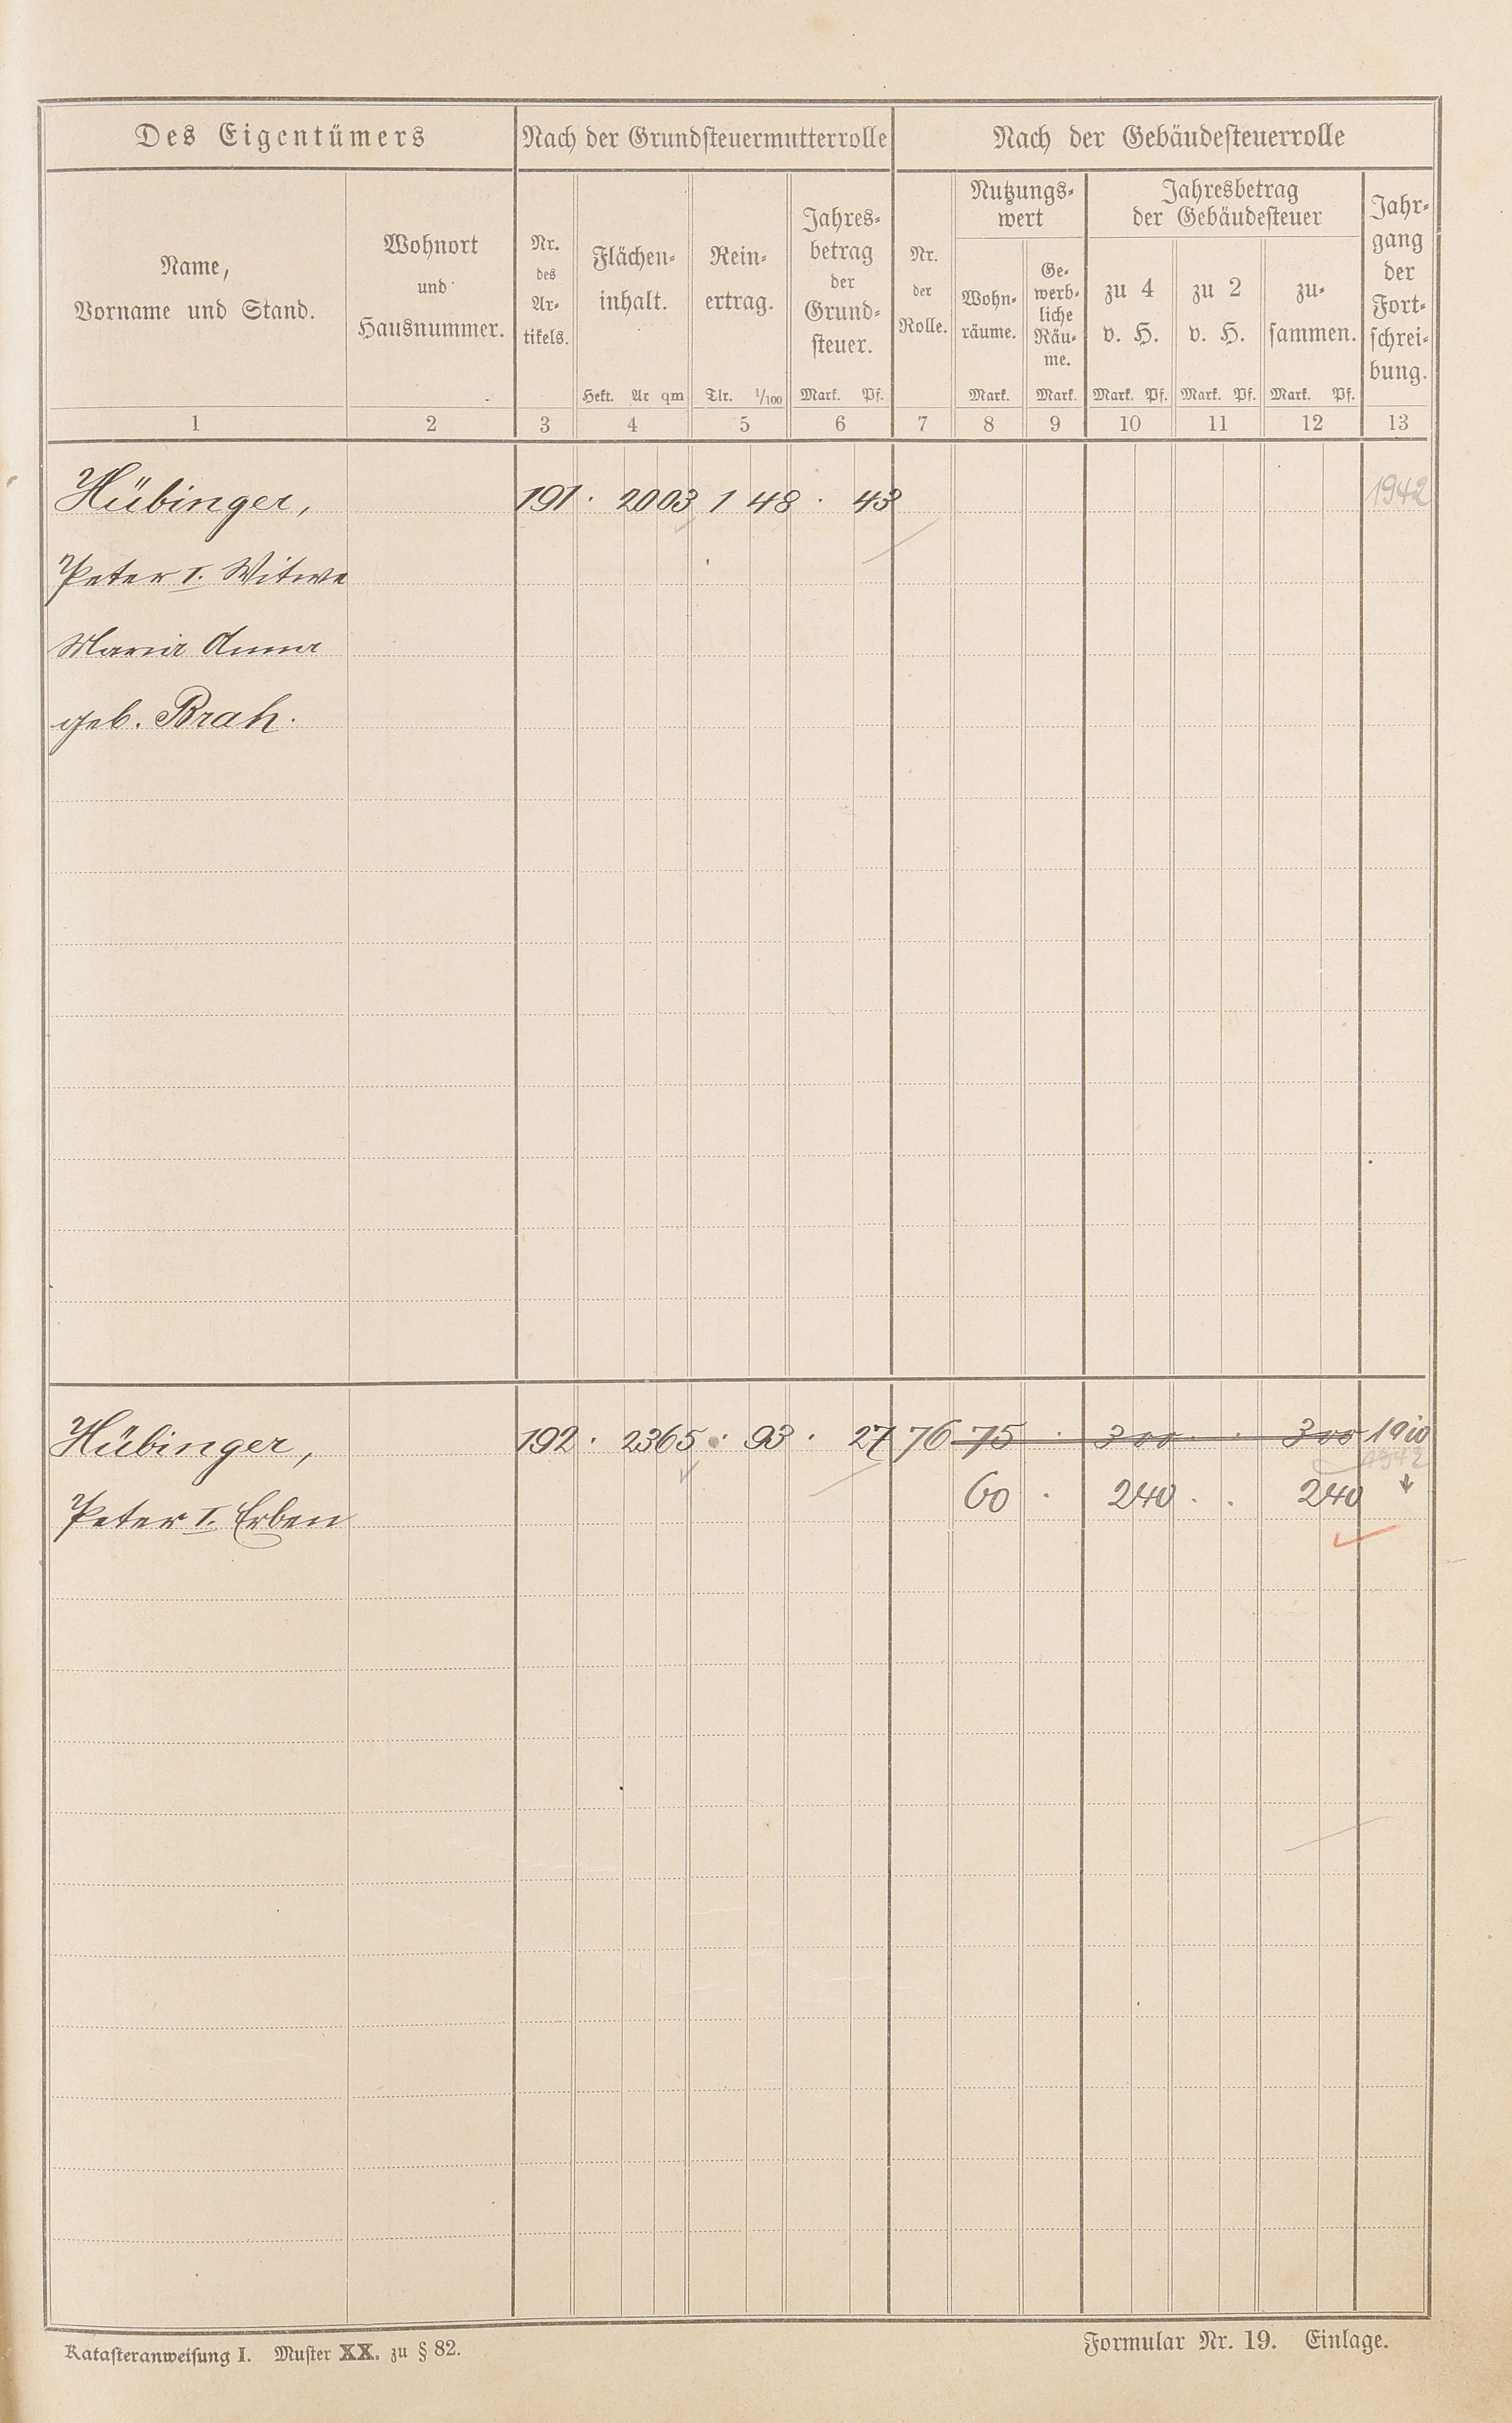 Des Eigentümers Nach der Grundsteuermutterrolle Nach der Gebäudesteuerrolle
Name,
Vorname und Stand.
Wohnort
und
Hausnummer.
Nr.
des
Ar-
tikels.
Flächen-
inhalt.
Hekt. Ar qm
Rein-
ertrag.
Tlr. 1/100
Jahres-
betrag
der
Grund-
steuer.
Mark. Pf.
Nr.
der
Rolle.
Nutzungs-
wert
Wohn-
räume.
Mark.
Ge-
werb-
liche
Räu-
me.
Mark.
Jahresbetrag
der Gebäudesteuer
zu 4
v. H.
Mark. Pf.
zu 2
v. H.
Mark. Pf.
zu-
sammen.
Mark. Pf.
Jahr-
gang
der
Fort-
schrei-
bung.
1 2 3 4 5 6 7 8 9 10 11 12 13
Hübinger, 191 . 20 03 1 48 . 43 1942
Peter I. Witwe
Maria Anna
geb. Brah.
Hübinger, 192 . 23 65 . 93 . 27 76 75 . 3 00 . . 3 00 1910
1942
Peter I. Erben 60 . 2 40 . . 2 40
Katasteranweisung I. Muster XX. zu § 82. Formular Nr. 19. Einlage.